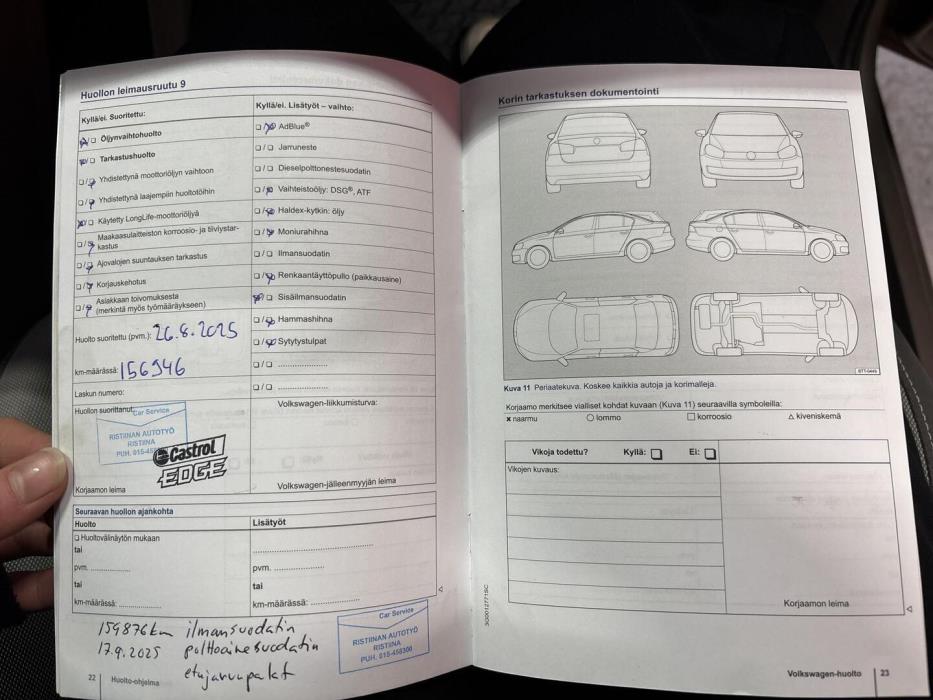 Huollon leimausruutu 9
Kyllä/ei. Suoritettu:
Öljynvaihtohuolto
Tarkastushuolto
Yhdistettynä moottoriöljyn vaihtoon
Yhdistettynä laajempiin huoltotöihin
Käytetty LongLife-moottoriöljyä
Maakaasulaitteiston korroosio- ja tiiviystar-
kastus
Ajovalojen suuntauksen tarkastus
Korjauskehotus
Asiakkaan toivomuksesta
(merkintä myös työmääräykseen)
Huolto suoritettu (pvm.): 26.8.2025
km-määrässä: 156946
Laskun numero:
Huollon suorittanut:
Car Service
RISTIINAN AUTOTYÖ
RISTIINA
PUH. 015-45
Castrol
EDGE
Korjaamon leima
Kyllä/ei. Lisätyöt – vaihto:
AdBlue®
Jarruneste
Dieselpolttonestesuodatin
Vaihteistoöljy: DSG®, ATF
Haldex-kytkin: öljy
Moniurahihna
Ilmansuodatin
Renkaantäyttöpullo (paikkausaine)
Sisäilmansuodatin
Hammashihna
Sytytystulpat
Volkswagen-liikkumisturva:
Volkswagen-jälleenmyyjän leima
Seuraavan huollon ajankohta
Huolto
Huoltovälinäytön mukaan
tai
pvm. ..................
tai
km-määrässä: ..................
Lisätyöt
pvm. ..................
tai
km-määrässä: ..................
159876km ilmansuodatin
17.9.2025 polttoainesuodatin
etujarrupalat
Car Service
RISTIINAN AUTOTYÖ
RISTIINA
PUH. 015-458300
22 Huolto-ohjelma
Korin tarkastuksen dokumentointi
Kuva 11 Periaatekuva. Koskee kaikkia autoja ja korimalleja.
Korjaamo merkitsee vialliset kohdat kuvaan (Kuva 11) seuraavilla symboleilla:
× naarmu ○ lommo □ korroosio △ kiveniskemä
Vikoja todettu? Kyllä: □ Ei: □
Vikojen kuvaus:
Korjaamon leima
Volkswagen-huolto 23